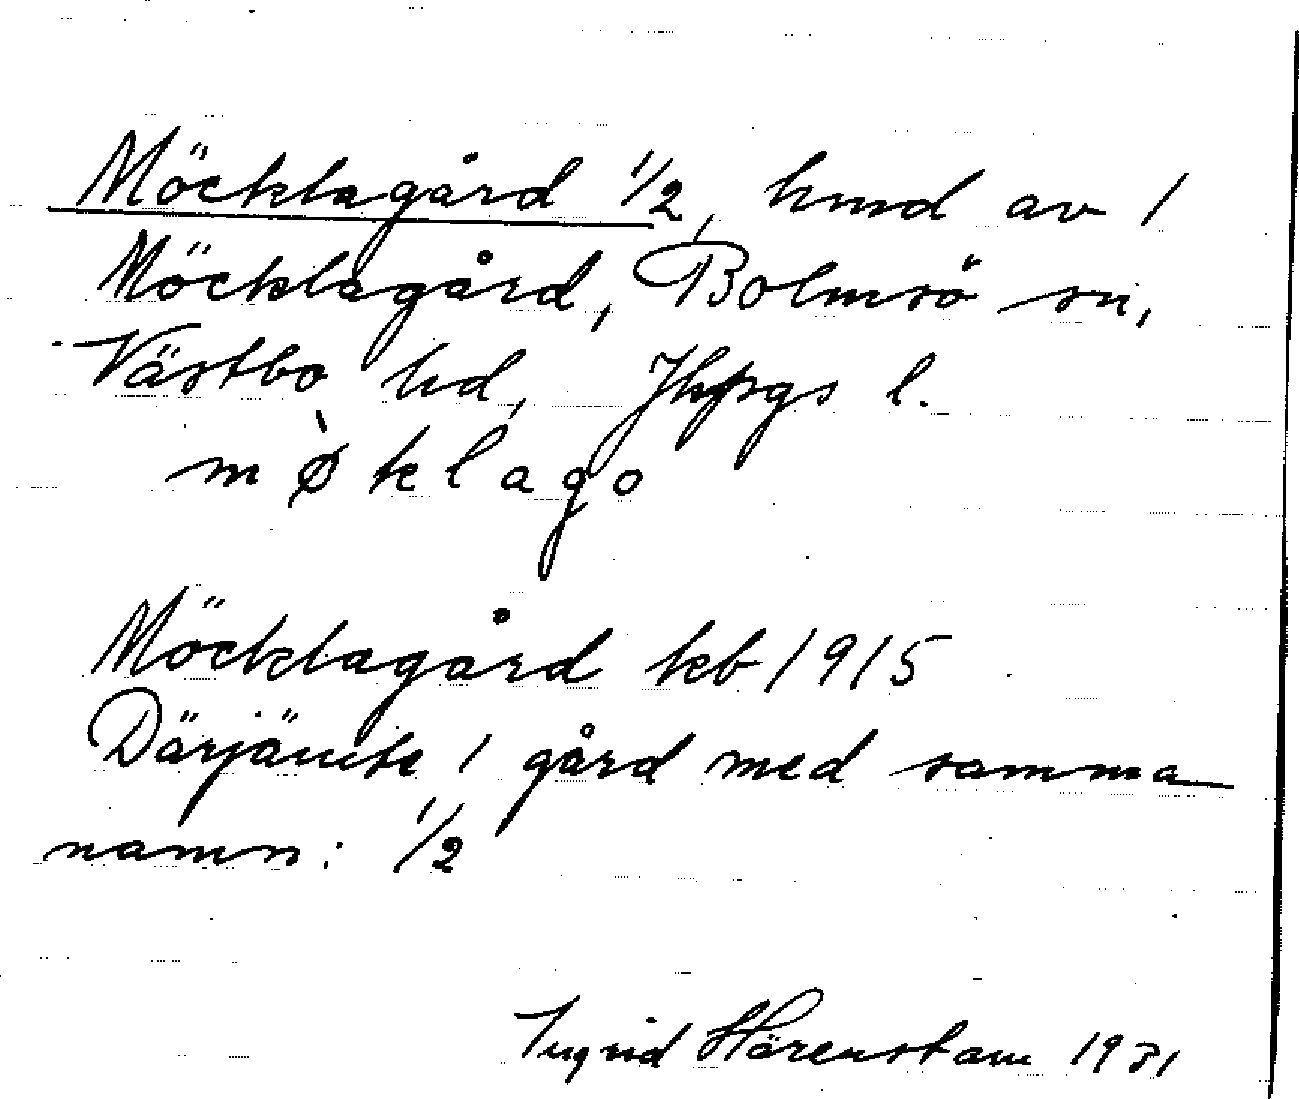 Möcklagård 1/2, hmd av 1
Möcklagård, Bolmsö sn,
Västbo hd, Jkpgs l.
mø̀klago
Möcklagård kb 1915
Därjämte 1 gård med samma
namn: 1/2
Ingrid Härenstam 1931